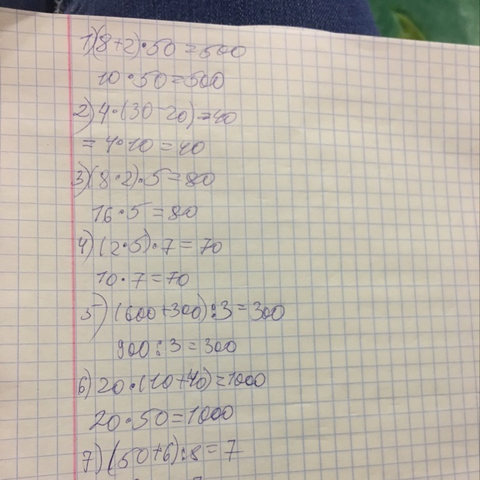 1)(8+2)·50=500
10·50=500
2)4·(30-20)=40
=4·10=40
3)(8·2)·5=80
16·5=80
4)(2·5)·7=70
10·7=70
5)(600+300):3=300
900:3=300
6)20·(10+40)=1000
20·50=1000
7)(50+6):8=7